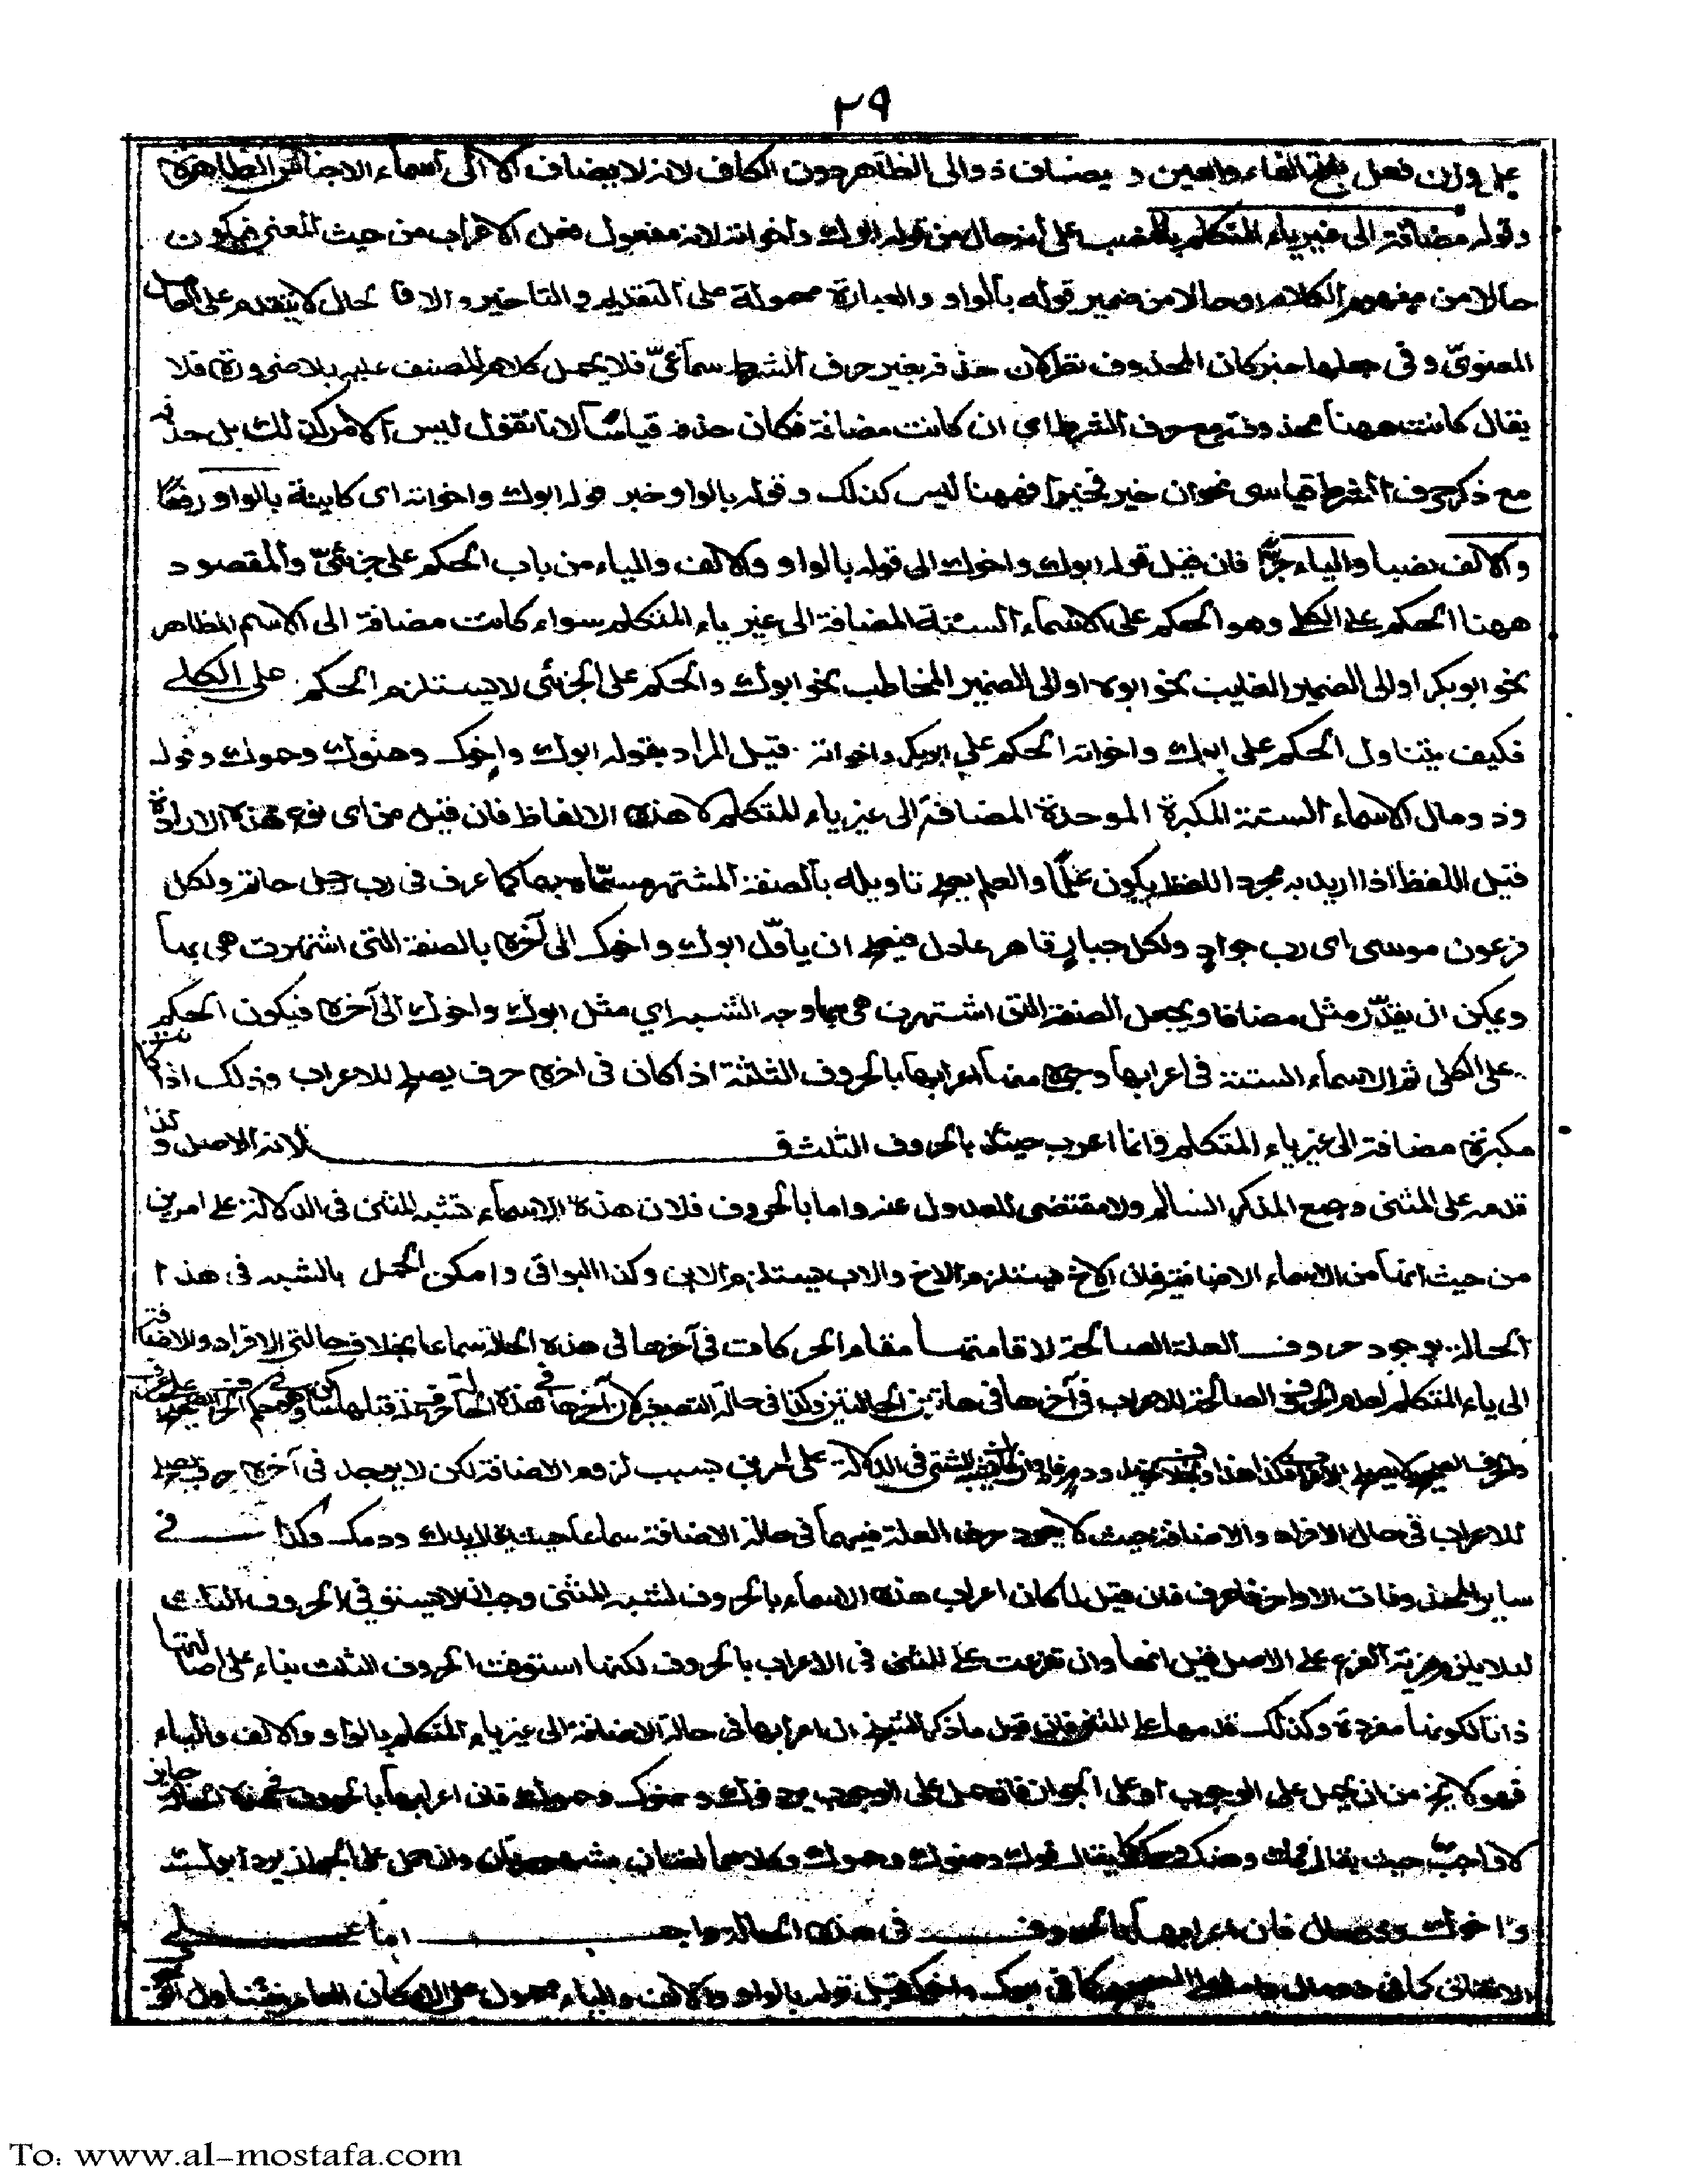 ٢٩
على وزن فعل بفتح الفاء والعين و يضاف ذو الى الظاهر دون الكاف لانه لا يضاف الا الى اسماء الاجناس الظاهرة
وقوله مضافة الى غير ياء المتكلم بالنصب على انه حال من قوله ابوك واخواته لانه مفعول فعل الاعراب من حيث المعنى فيكون
حالا من مفهوم الكلام او حالا من ضمير قوله بالواو والعبارة محمولة على التقديم والتاخير والا فالحال لا يتقدم على العامل
المعنوى وفى جعلها خبر كان المحذوف نظر لان حذفه بغير حرف الشرط سماعى فلا يحمل كلام المصنف عليه بلا ضرورة فلا
يقال كانت ههنا محذوفة مع حرف الشرط اى ان كانت مضافة فكان حذفه قياسا لانا نقول ليس الامر كذلك بل حذفه
مع ذكر حرف الشرط قياسى نحو ان خير فخيرا فههنا ليس كذلك وقوله بالواو خبر قوله ابوك واخواته اى كاينة بالواو رفعا
والالف نصبا والياء جرا فان قيل قوله ابوك واخوك الى قوله بالواو والالف والياء من باب الحكم على جزئى والمقصود
ههنا الحكم على الكلى وهو الحكم على الاسماء الستة المضافة الى غير ياء المتكلم سواء كانت مضافة الى الاسم الظاهر
نحو ابو بكر او الى الضمير الغايب نحو ابوه او الى الضمير المخاطب نحو ابوك والحكم على الجزئى لا يستلزم الحكم على الكلى
فكيف يتناول الحكم على ابوك واخواته الحكم على ابو بكر واخواته قيل المراد بقوله ابوك واخوك وهنوك وحموك وفوك
وذو مال الاسماء الستة المكبرة الموحدة المضافة الى غير ياء المتكلم لا هذه الالفاظ فان قيل من اى نوع هذه الارادة
قيل اللفظ اذا اريد به مجرد اللفظ يكون علما والعلم يصح تاويله بالصفة المشتهر مسماه بها كما عرف فى رب حاتم ولكل
فرعون موسى اى رب جواد ولكل جبار قاهر عادل فيصح ان ياول ابوك واخوك الى آخره بالصفة التى اشتهرت هى بها
ويمكن ان يقدر مثل مضافا ويجعل الصفة التى اشتهرت هى بها وجه الشبه اي مثل ابوك واخوك الى آخره فيكون الحكم
على الكلى ثم الاسماء الستة فى اعرابها وجوه منها اعرابها بالحروف الثلثة اذا كان فى اخره حرف يصلح للاعراب وذلك اذا كانت
مكبرة مضافة الى غير ياء المتكلم وانما اعرب حينئذ بالحروف الثلثة لانه الاصل وكذا
قدمه على المثنى وجمع المذكر السالم ولا مقتضى للعدول عنه واما بالحروف فلان هذه الاسماء تشبه المثنى فى الدلالة على امرين
من حيث انها من الاسماء الاضافية فان الاخ يستلزم الاخ والاب يستلزم الابن وكذا البواقى وامكن الحمل بالشبه فى هذا
الحالة بوجود حروف العلة الصالحة لاقامتها مقام الحركات فى آخرها فى هذه الحالة سماعا بخلاف حالتى الافراد والاضافة
الى ياء المتكلم لعدم الصالحة للاعراب فى آخرها فى هاتين الحالتين وكذا فى حالة التصغير لان آخرها فى هذه الحالة
لا يصلح فكذا هذا وبخلاف يد ودم فانه وان تشبه المثنى فى الدلالة على امرين بسبب لزوم الاضافة لكن لا يوجد فى آخره حرف يصلح
للاعراب فى حال الافراد والاضافة حيث لا يعود حرف العلة فيهما فى حالة الاضافة سماعا حيث يقال يدك ودمك وكذا فى
ساير المحذوفات الاواخر فاعرف فان قيل لما كان اعراب هذه الاسماء بالحروف لشبه المثنى وجب ان لا يستوفى الحروف الثلث
ليلا يلزم مزية الفرع على الاصل قيل انها وان تفرعت على المثنى فى الاعراب بالحروف لكنها استوفت الحروف الثلث بناء على اصالتها
ذاتا لكونها مفردة وكذلك قدمها على المثنى فان قيل ما ذكر الشيخ ان اعرابها فى حالة الاضافة الى غير ياء المتكلم بالواو والالف والياء
فهو لا يخ من ان يحمل على الوجوب او على الجواز فان حمل على الوجوب يرد فوك وهنوك وحموك فان اعرابها بالحروف فى هذه الحالة جايز
لا واجب حيث يقال فمك وهنك وحمك كما يقال فوك وهنوك وحموك وكلاهما لغتان وان حمل على الجواز يرد ابوك
واخوك وذو مال فان اعرابها بالحروف فى هذه الحالة واجب اما على
كما فى ذو مال كما فى ابوك واخوك قيل قوله بالواو والالف والياء محمول على الامكان العام فيتناول
To: www.al-mostafa.com